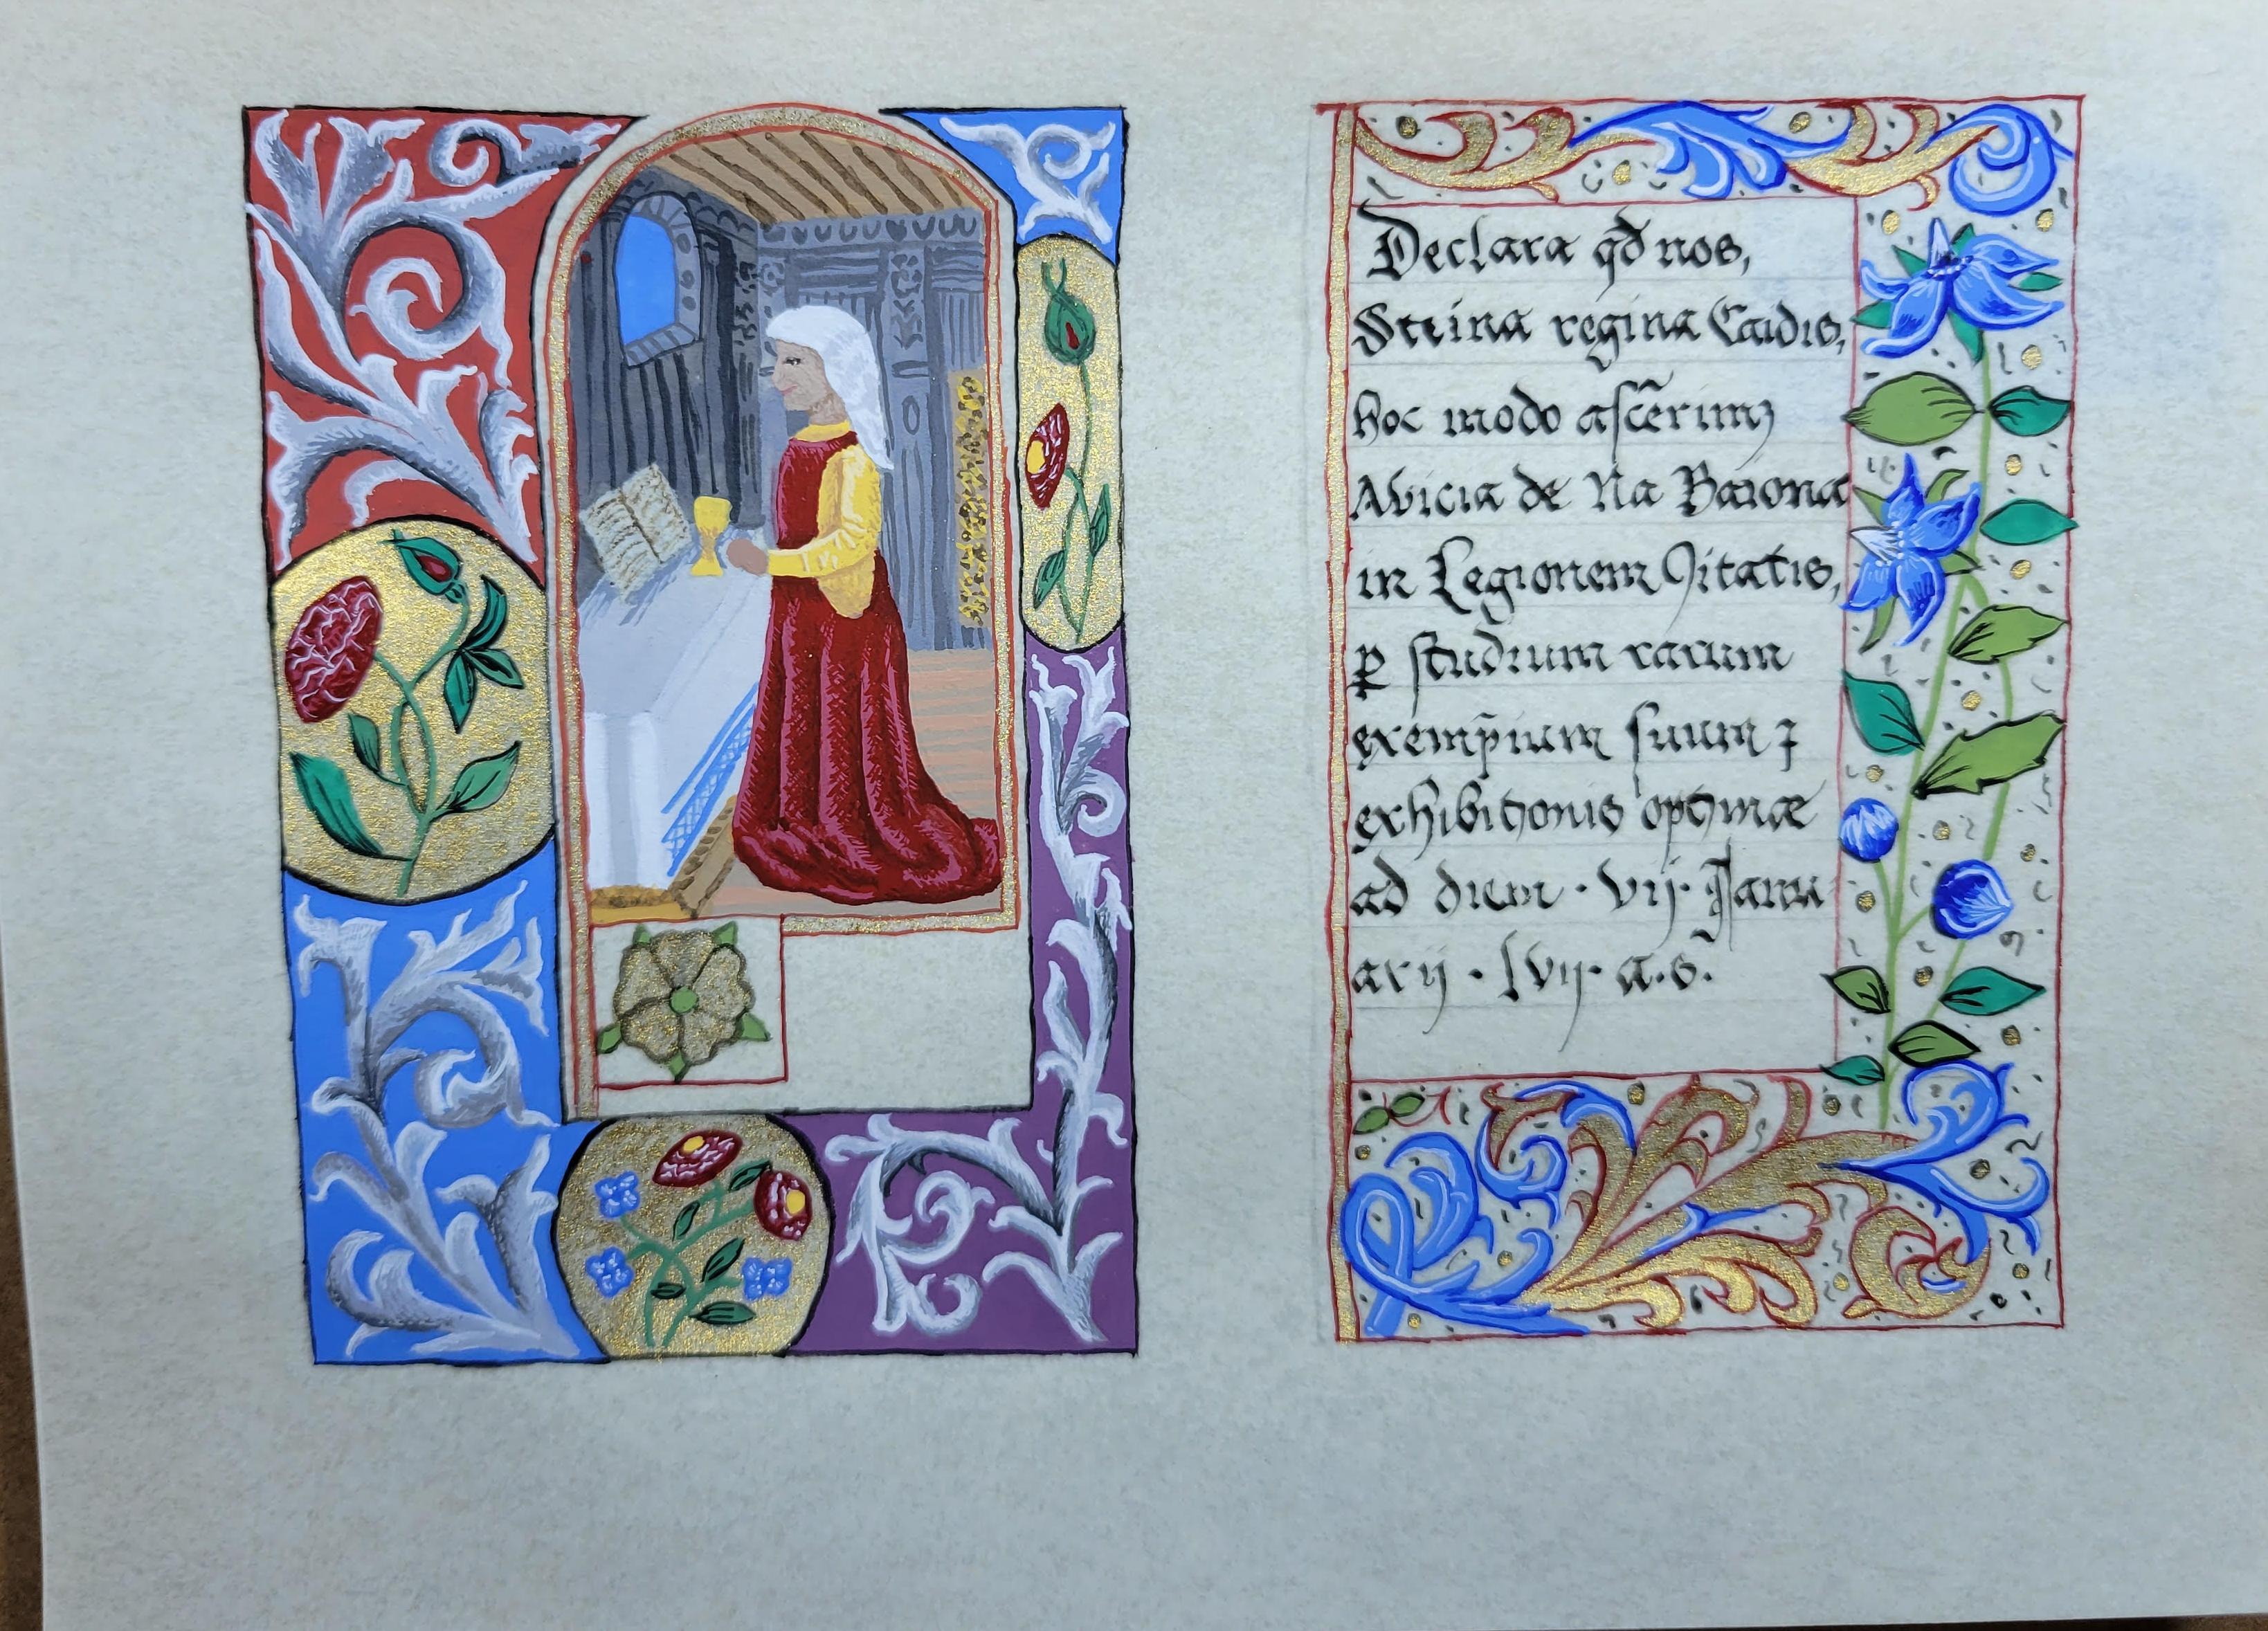 Declara qd̄ nos,
Steina regina Caidis,
hoc modo asc̄erimꝫ
Avicia de Na Baiona
in Legionem Ꝯitatis,
ꝑ studium rarum
exemp̄ium suum ⁊
exhibitionis optimæ
ad diem · vij · Janu
arij · lvij · a.s.